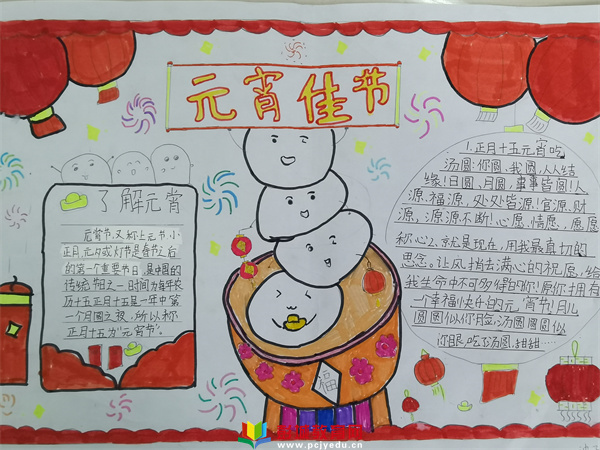 元宵佳节
了解元宵
元宵节,又称上元节,小
正月、元夕或灯节是春节之后
的第一个重要节日,是中国的
传统节日之一,时间为每年农
历十五正月十五是一年中第
一个月圆之夜,所以称
正月十五为"元宵节"。
1.正月十五元宵吃
汤圆:你圆,我圆,人人结
缘!日圆,月圆,事事皆圆!人
源,福源,处处皆源!官源,财
源,源源不断!心愿,情愿,愿愿
称心2、就是现在,用我最真切的
思念。让风捎去满心的祝愿,给
我生命中不可多得的你!愿你拥有
一个幸福快乐的元,宵节!月儿
圆圆似你脸,汤圆圆圆似
你眼,吃汤圆,甜甜……
福
www.pcjyedu.cn